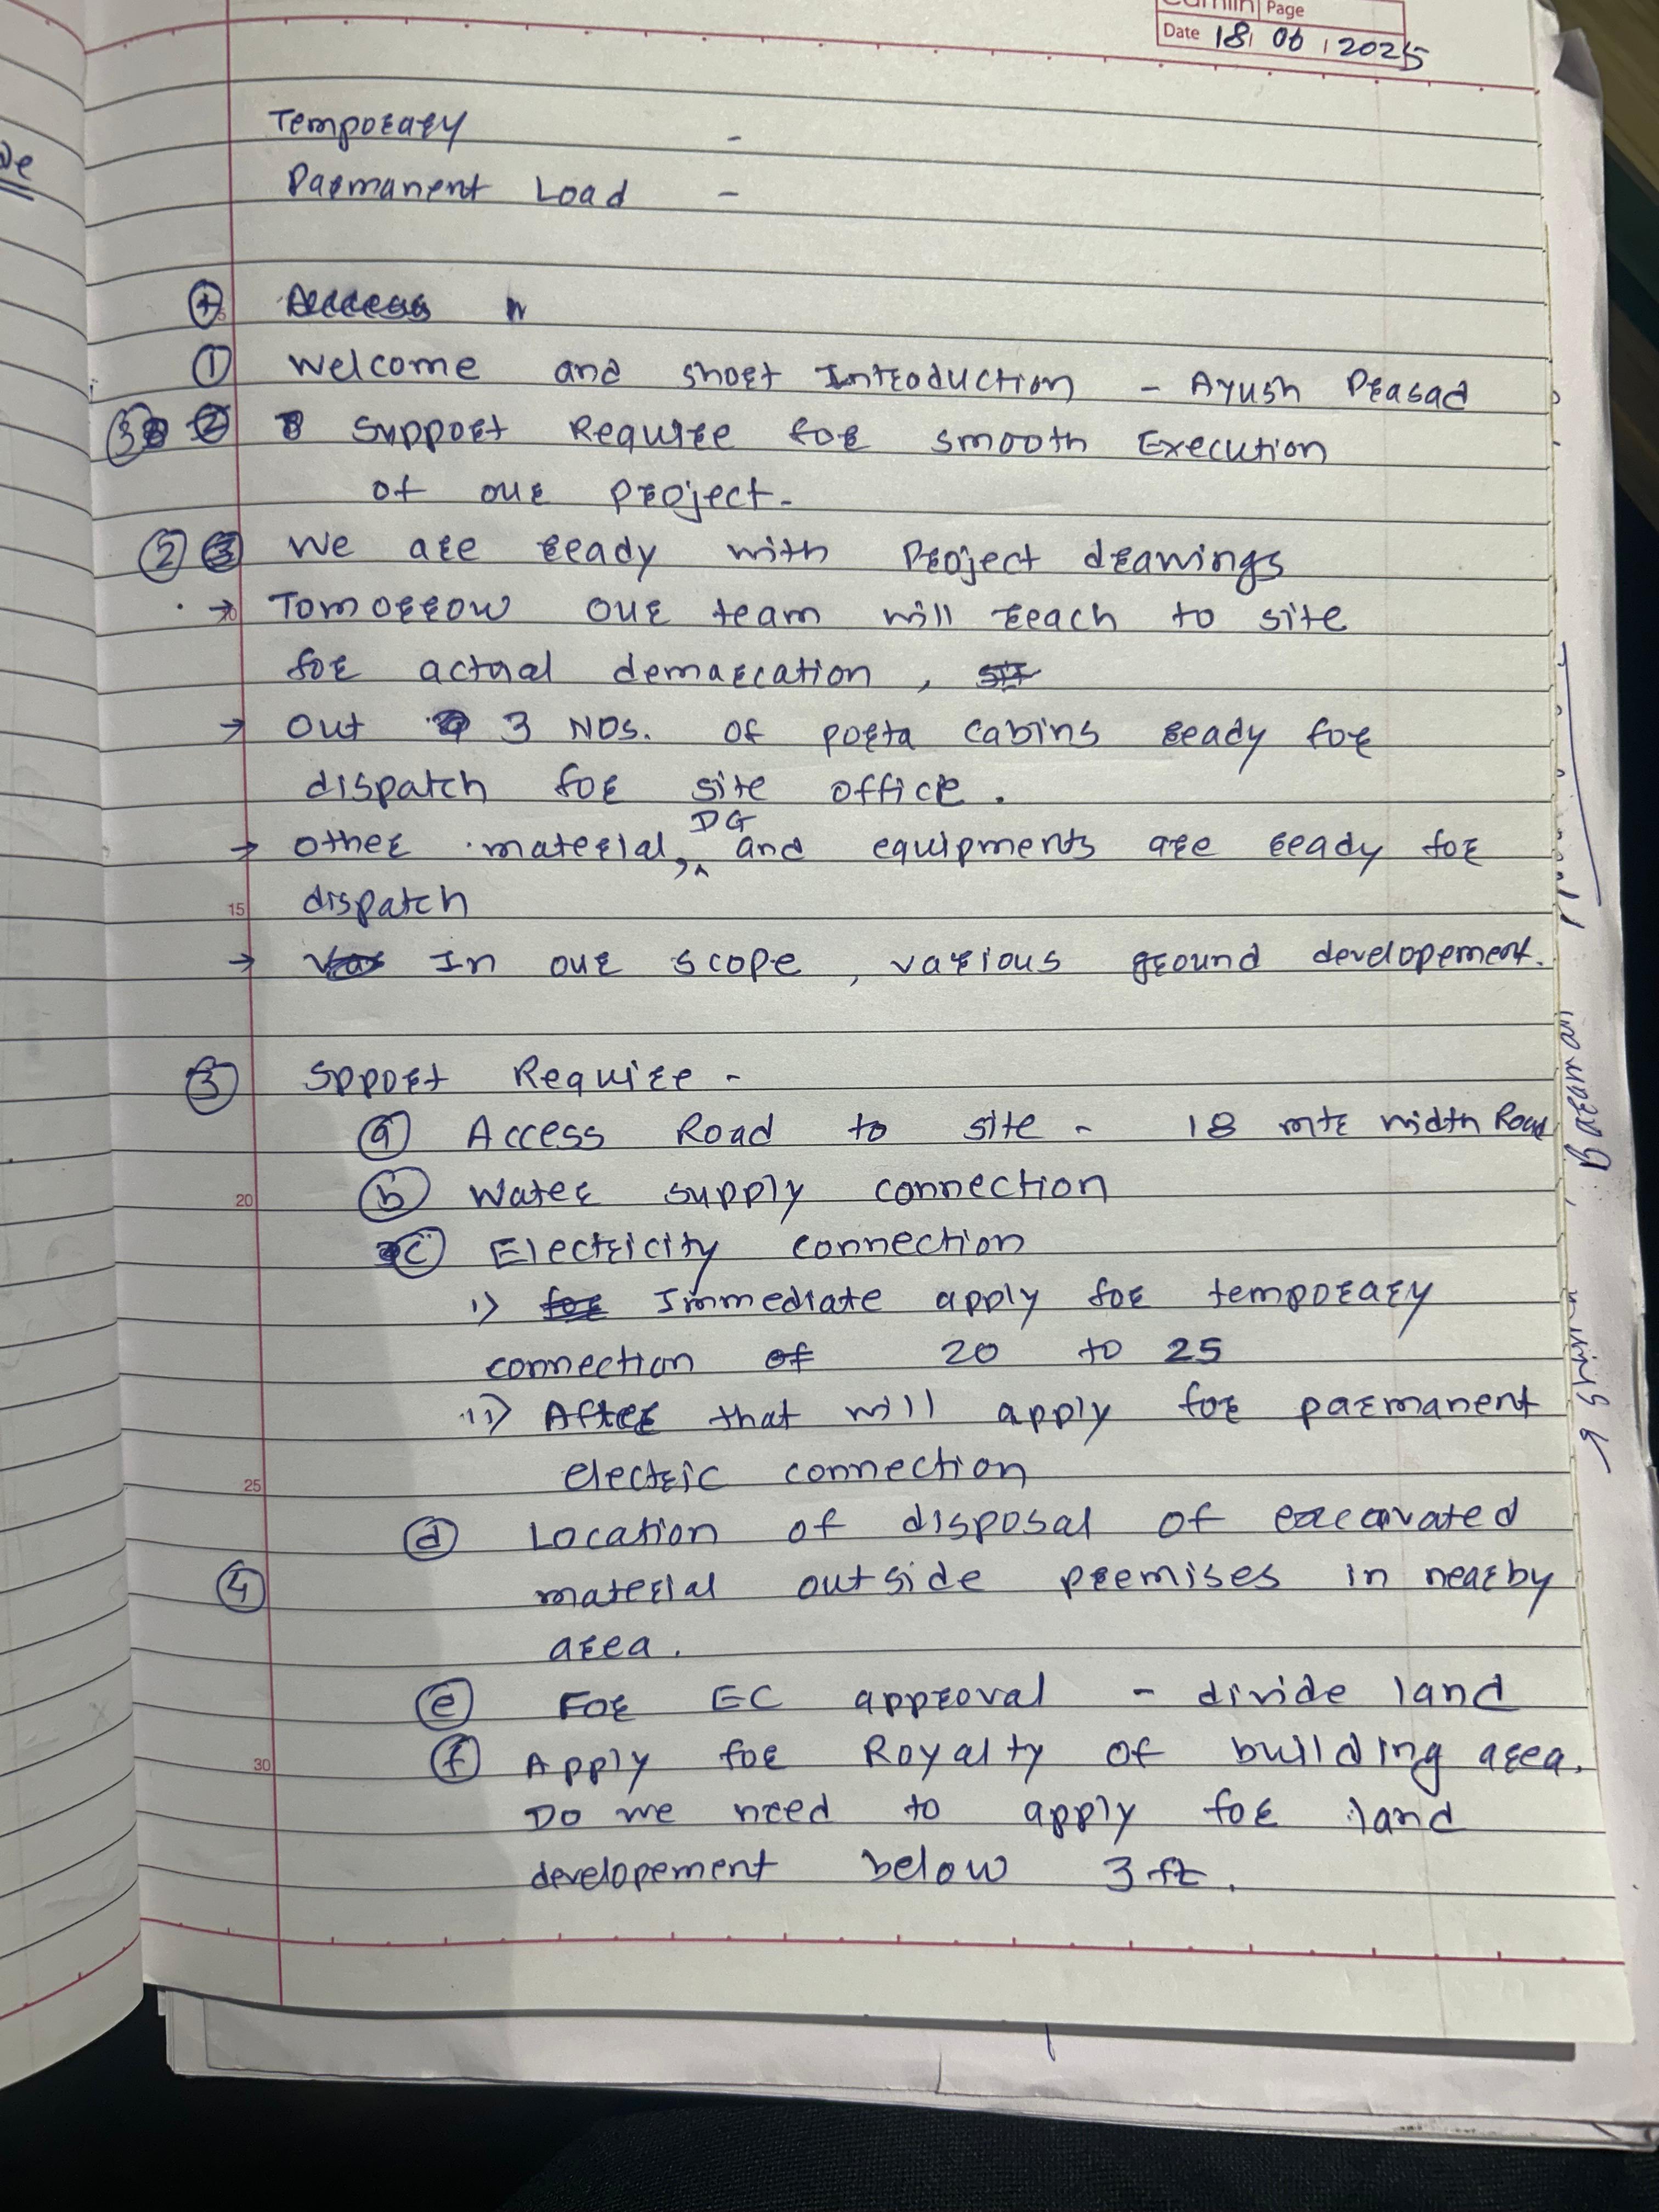 Page
Date 18 06 2025
Temporary -
Parmanent Load -
Access
① Welcome and short Introduction - Ayush Prasad
③ ② Support Requiree for smooth Execution
of our project.
② ③ We are ready with Project drawings
→ Tomorrow our team will reach to site
for actual demarcation,
→ Out 3 NOS. of porta cabins ready for
dispatch for site office.
DG
→ other material, ^ and equipments are ready for
15 dispatch
→ In our scope, various ground developement.
③ Spport Requiree -
ⓐ Access Road to site - 18 mtr width Road
20 ⓑ Water supply connection
ⓒ Electricity connection
i) for Immediate apply for temporary
connection of 20 to 25
ii) After that will apply for parmanent
25 electric connection
ⓓ Location of disposal of excavated
④ material outside premises in nearby
area.
ⓔ For EC approval - divide land
30 ⓕ Apply for Royalty of building area.
Do we need to apply for land
developement below 3 ft.
Barman